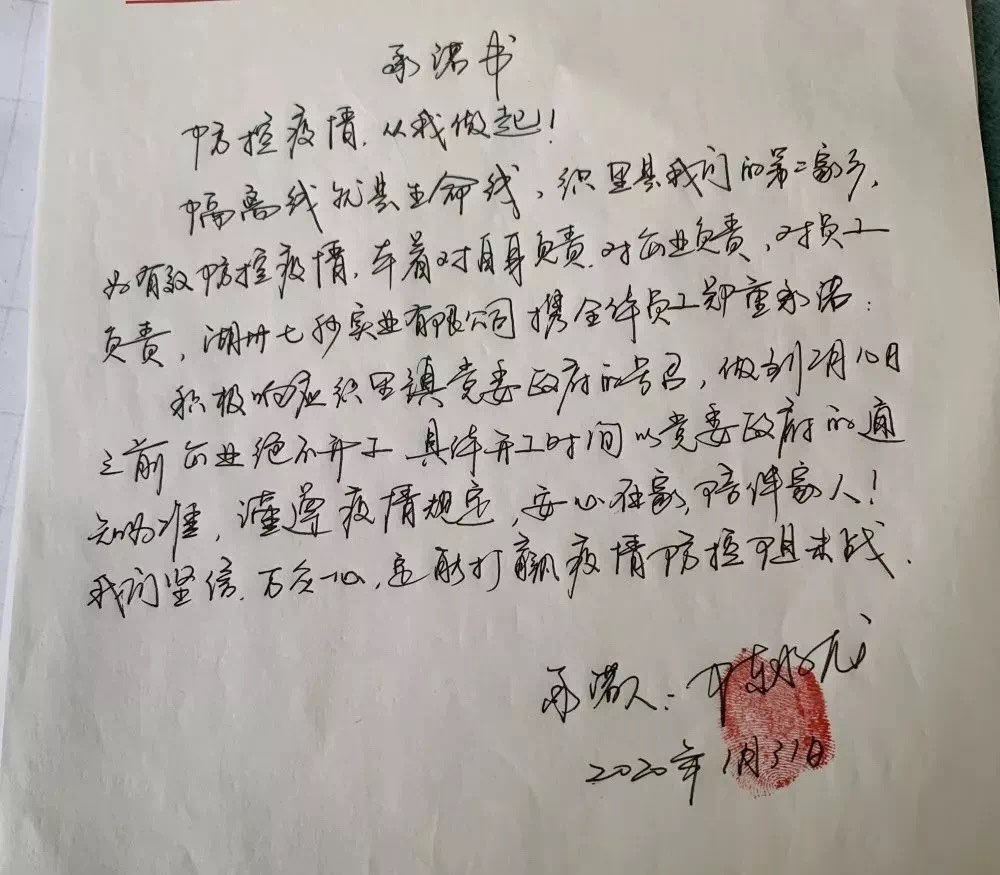 承诺书
防控疫情，从我做起！
隔离线就是生命线，织里是我们的第二家乡，
为有效防控疫情，本着对自身负责、对企业负责、对员工
负责，湖州七秒实业有限公司携全体员工郑重承诺：
积极响应织里镇党委政府的号召，做到2月10日
之前企业绝不开工 具体开工时间以党委政府的通
知为准，谨遵疫情规定，安心在家，陪伴家人！
我们坚信，万众一心，定能打赢疫情防控阻击战。
承诺人：
2020年1月31日